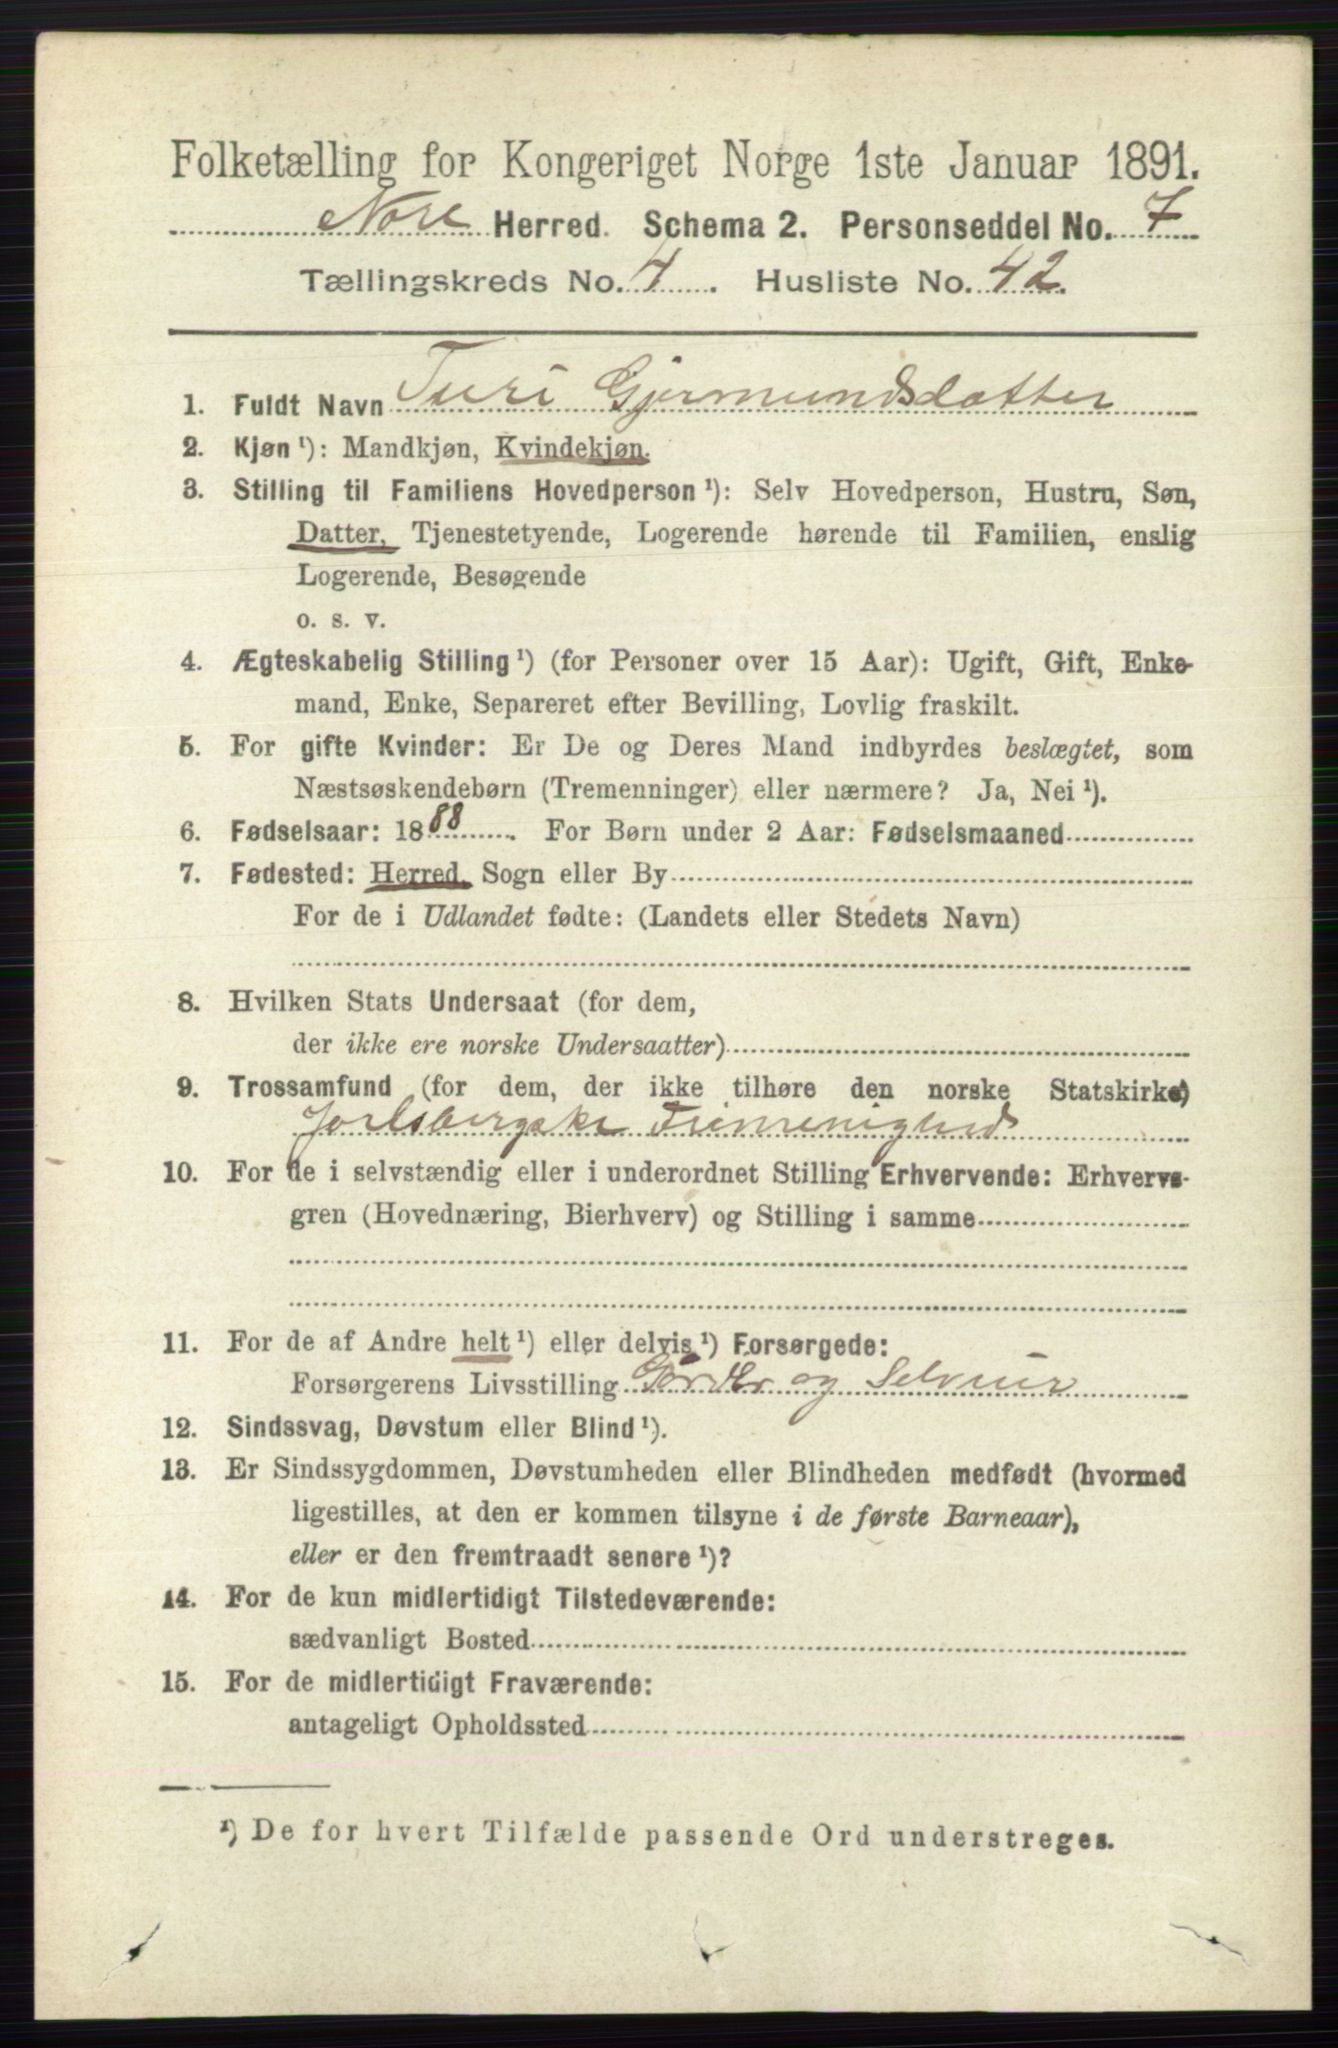 Folketælling for Kongeriget Norge 1ste Januar 1891.
Nore Herred. Schema 2. Personseddel No. 7
Tællingskreds No. 4. Husliste No. 42.
1. Fuldt Navn Turi Gjermundsdatter
2. Kjøn ¹): Mandkjøn, Kvindekjøn.
3. Stilling til Familiens Hovedperson ¹): Selv Hovedperson, Hustru, Søn,
Datter, Tjenestetyende, Logerende hørende til Familien, enslig
Logerende, Besøgende
o. s. v.
4. Ægteskabelig Stilling ¹) (for Personer over 15 Aar): Ugift, Gift, Enke-
mand, Enke, Separeret efter Bevilling, Lovlig fraskilt.
5. For gifte Kvinder: Er De og Deres Mand indbyrdes beslægtet, som
Næstsøskendebørn (Tremenninger) eller nærmere? Ja, Nei ¹).
6. Fødselsaar: 1888. For Børn under 2 Aar: Fødselsmaaned
7. Fødested: Herred, Sogn eller By
For de i Udlandet fødte: (Landets eller Stedets Navn)
8. Hvilken Stats Undersaat (for dem,
der ikke ere norske Undersaatter)
9. Trossamfund (for dem, der ikke tilhøre den norske Statskirke)
Jarlsbergske Frimenighed
10. For de i selvstændig eller i underordnet Stilling Erhvervende: Erhvervs-
gren (Hovednæring, Bierhverv) og Stilling i samme
11. For de af Andre helt ¹) eller delvis ¹) Forsørgede:
Forsørgerens Livsstilling og Selveier
12. Sindssvag, Døvstum eller Blind ¹).
13. Er Sindssygdommen, Døvstumheden eller Blindheden medfødt (hvormed
ligestilles, at den er kommen tilsyne i de første Barneaar),
eller er den fremtraadt senere ¹)?
14. For de kun midlertidigt Tilstedeværende:
sædvanligt Bosted
15. For de midlertidigt Fraværende:
antageligt Opholdssted
¹) De for hvert Tilfælde passende Ord understreges.